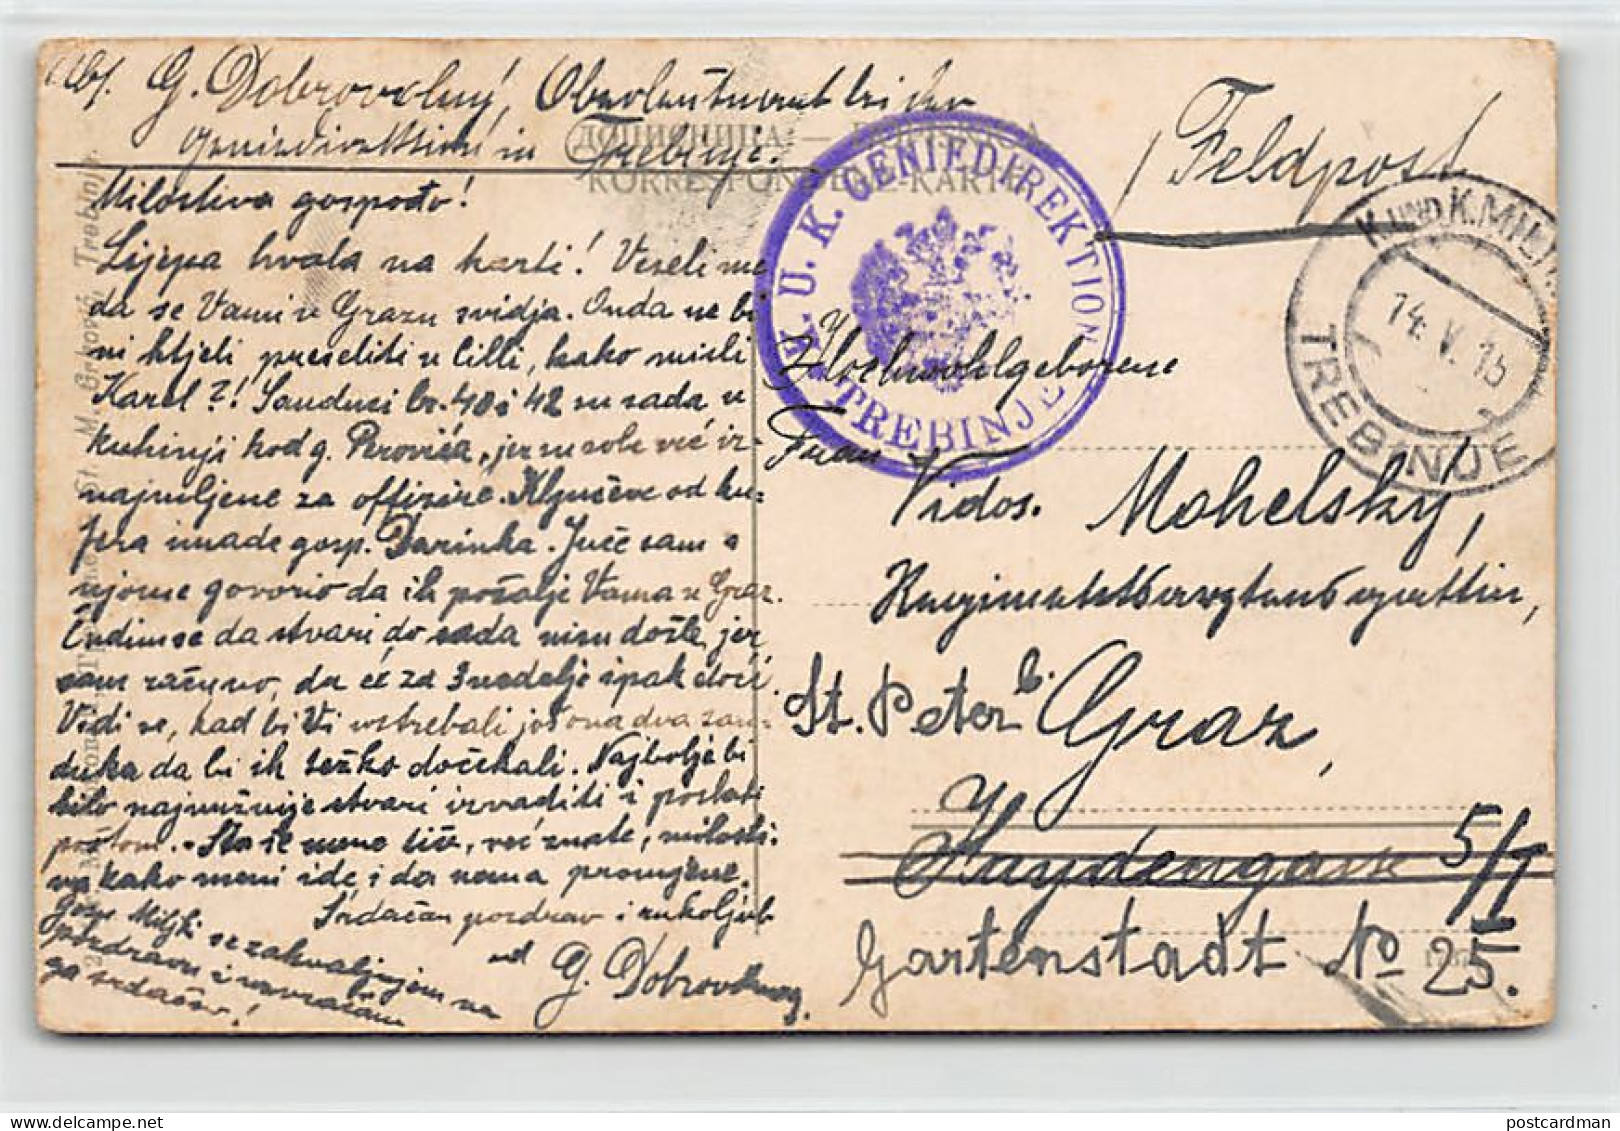 Abs. G. Dobrovolný, Oberleutnant bei der
Geniedirektion in Trebinje.
ДОПИСНИЦА —
KORRESPONDENZ-KARTE
Feldpost
K. U. K. GENIEDIREKTION
TREBINJE
K. UND K. MILIT.
14. V. 15
TREBINJE
Milostiva gospođo!
Lijepa hvala na karti! Veseli me
da se Vami u Grazu svidja. Onda ne bi
ni htjeli preseliti u Cilli, kako misli
Karel?! Sanduci br. 40 i 42 su sada u
kuhinji kod g. Perovića, jer su sobe već iz-
najmljene za offizire. Ključeve od ku-
fera imade gosp. Darinka. Juče sam s
njome govorio da ih pošalje Vama u Graz.
Čudim se da stvari do sada nisu došle, jer
sam računo, da će za 3 nedelje ipak doći.
Vidi se, kad bi Vi ustrebali još ona dva san-
duka da bi ih težko dočekali. Najbolje bi
bilo najnužnije stvari izvaditi i poslati
poštom. - Šta se mene tiče, već znate, milosti-
va kako meni ide, i da nema promjene.
Srdačan pozdrav i rukoljub
od G. Dobrovolnog.
Gosp. Miljki se zahvaljujem na
pozdravu i uzvraćam
ga srdačno!
Hochwohlgeborene
Frau
Vidos. Mohelský,
St. Peter b. Graz,
Haydengasse 5/I
Gartenstadt No 25.
St. M. Grković, Trebinje